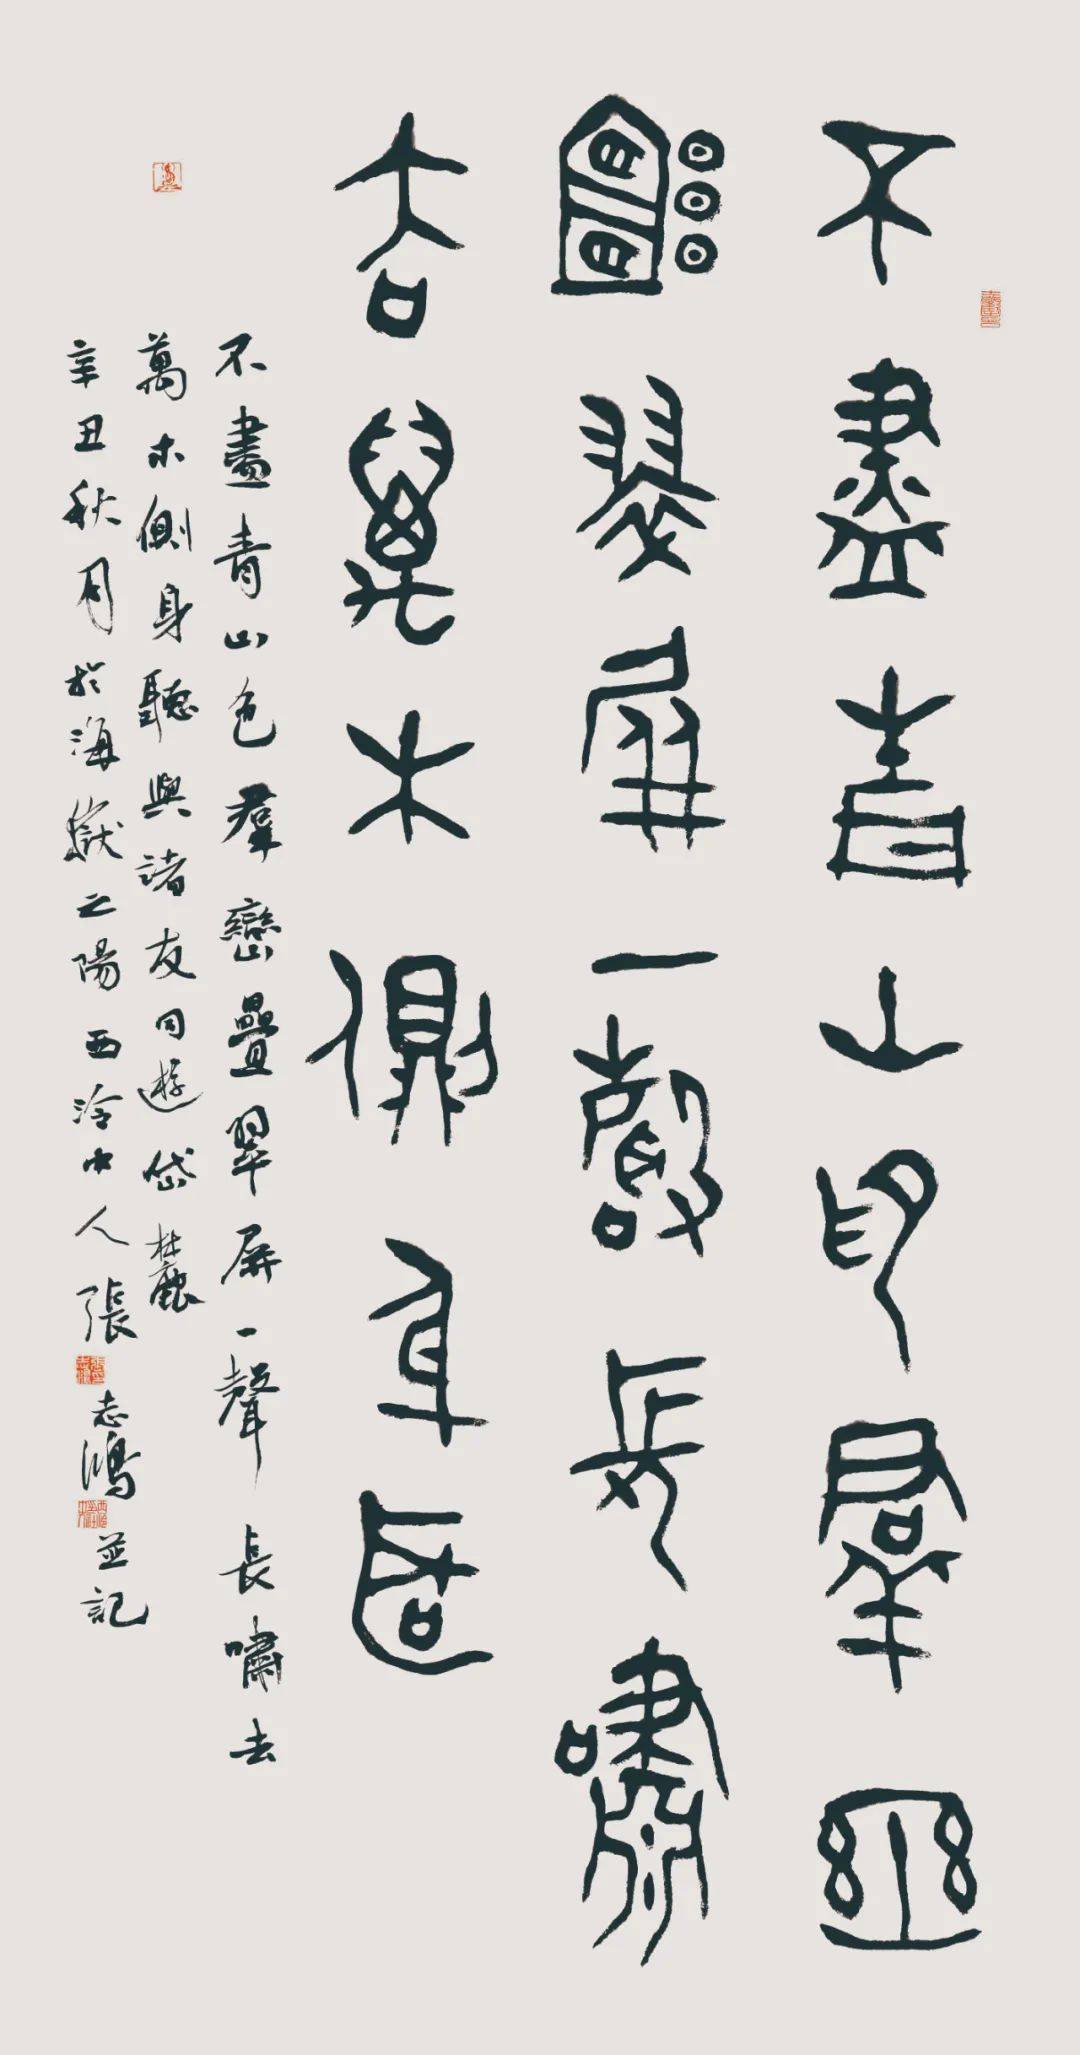 不盡青山色群巒
疊翠屏一聲長嘯
去萬木側身聽
不盡青山色羣巒疊翠屏一聲長嘯去
萬木側身聽與諸友同遊岱麓
辛丑秋月於海嶽之陽西泠中人張志鴻並記